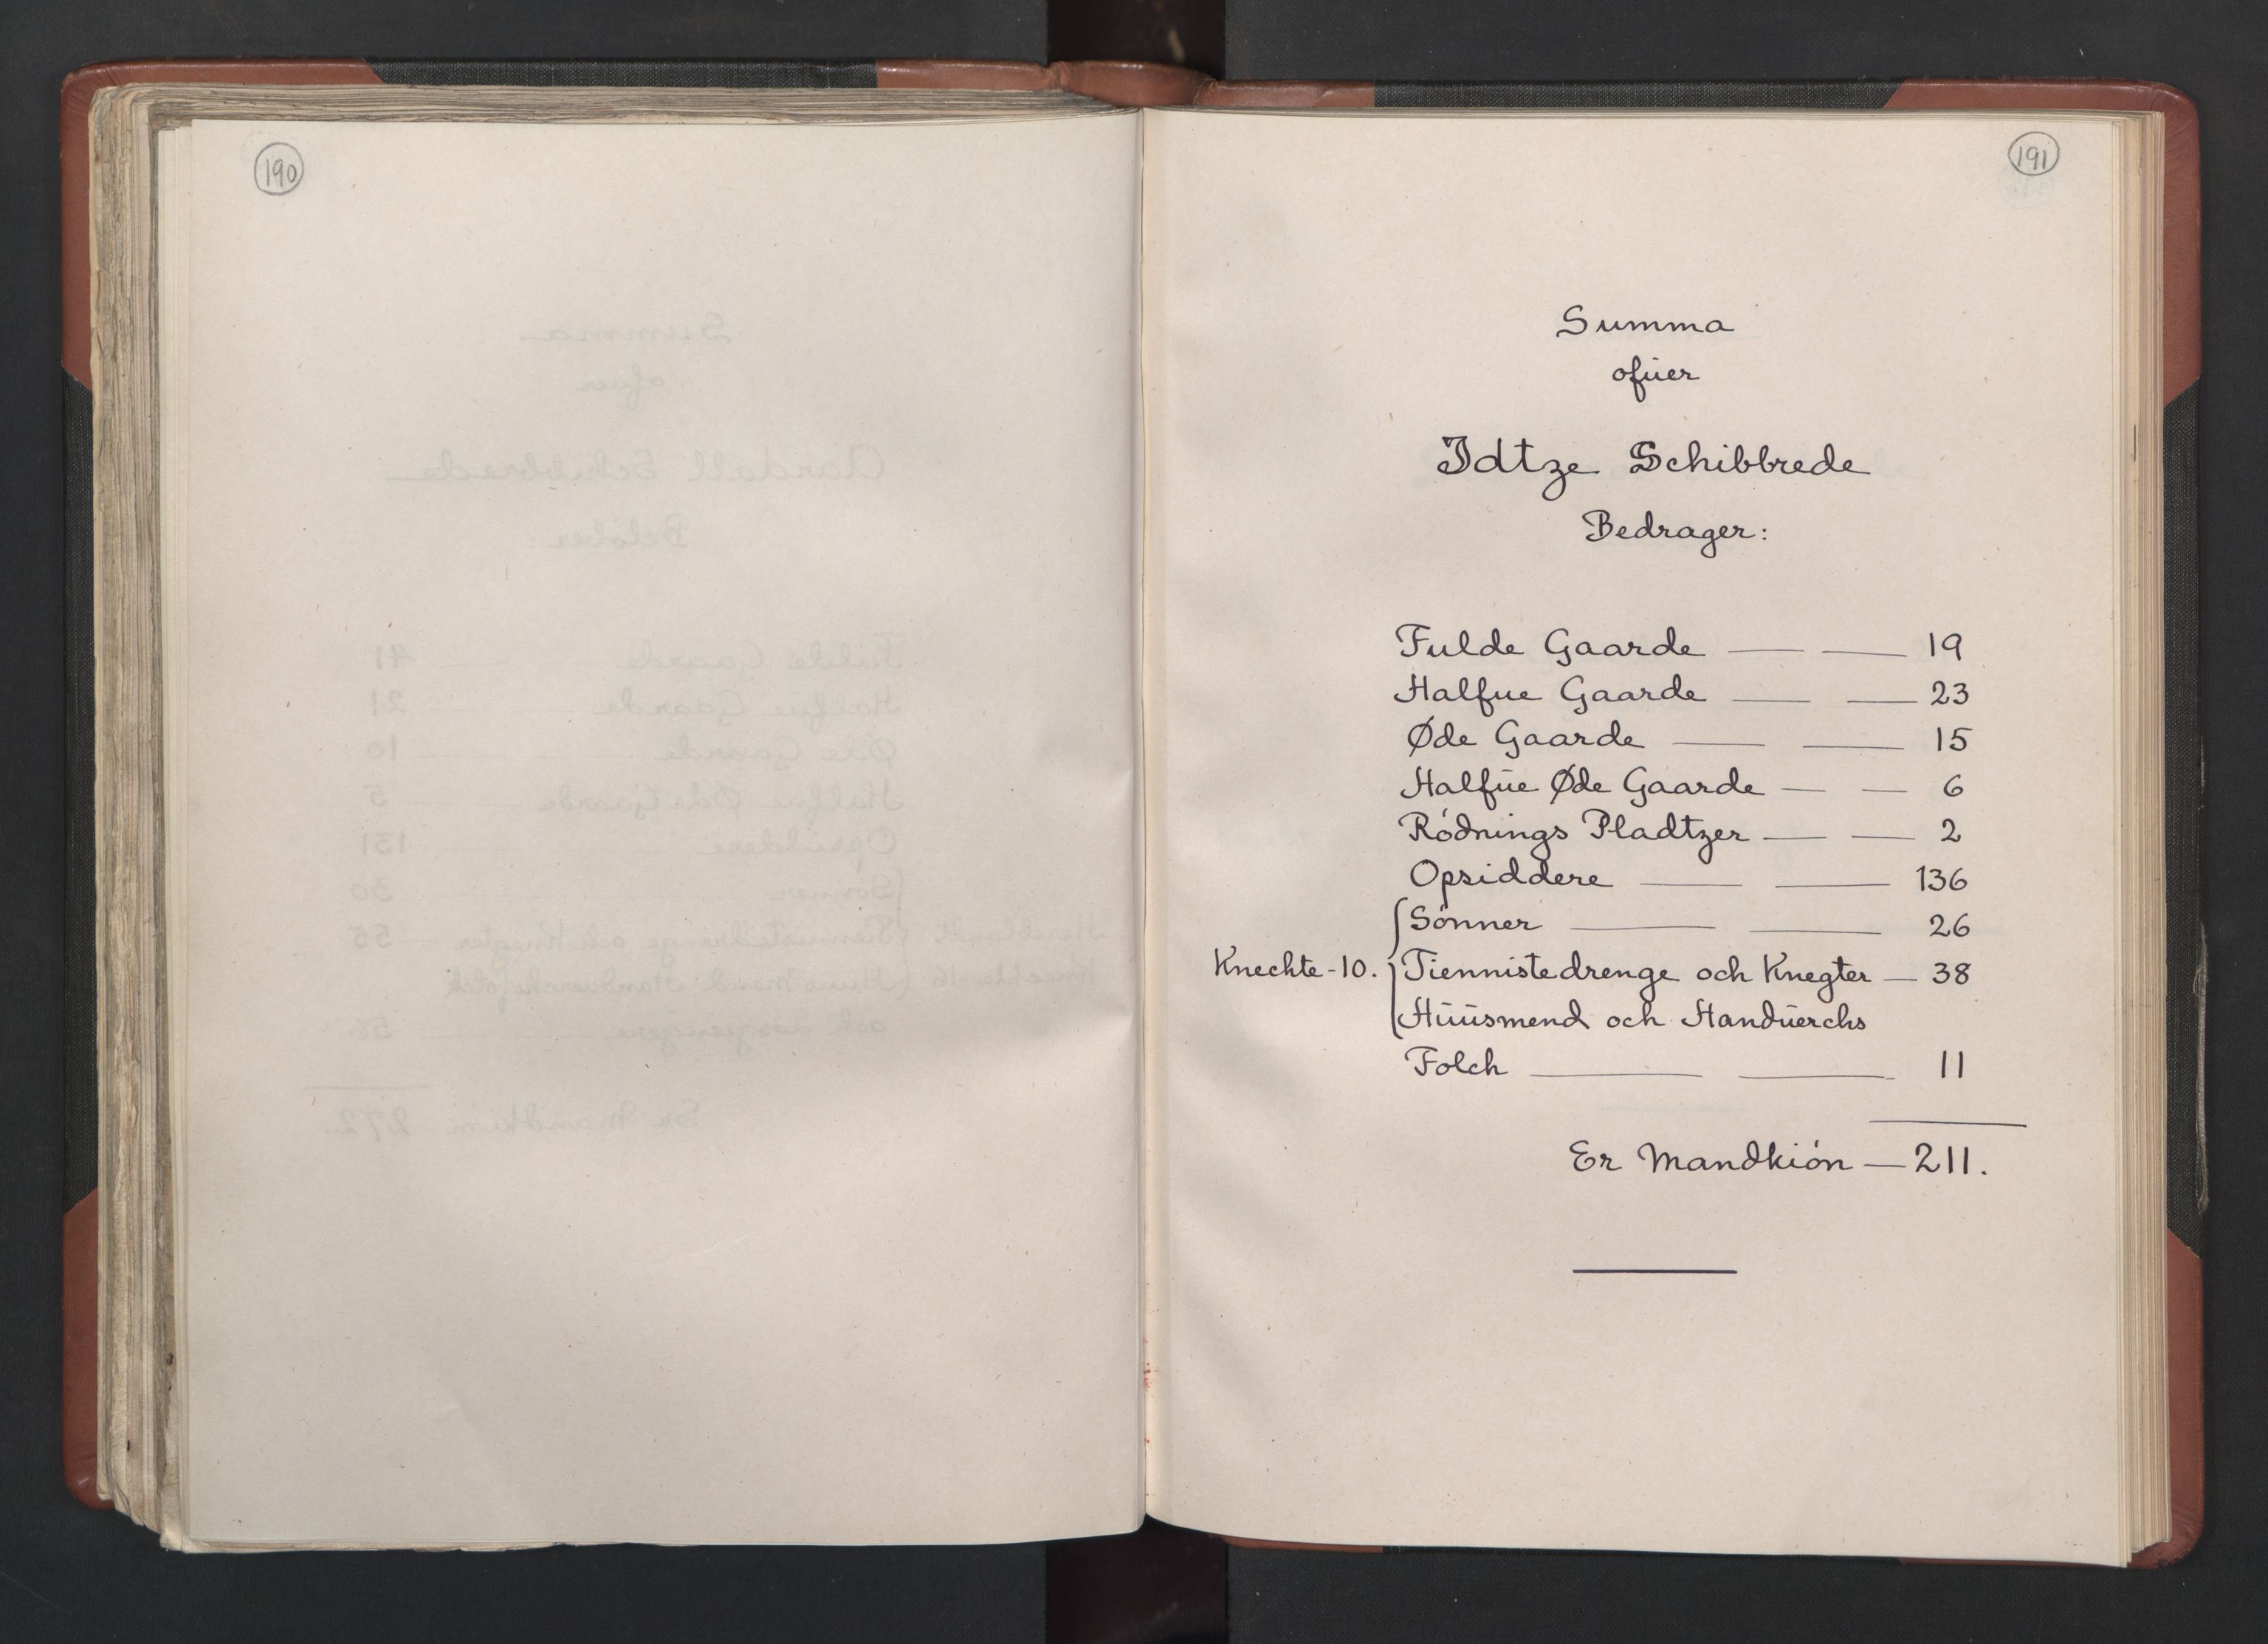 190
191
Summa
ofüer
Idtze Schibbrede
Bedrager:
Fulde Gaarde — — 19
Halfue Gaarde — — 23
Øde Gaarde — — 15
Halfüe Øde Gaarde — — 6
Ródnings Pladtzer — — 2
Opsiddere — — 136
Sónner — — 26
Knechte-10. Tiennistedrenge och Knegter — 38
Húúsmend och Handüerchs
Folch — — 11
Er Mandkión — 211.